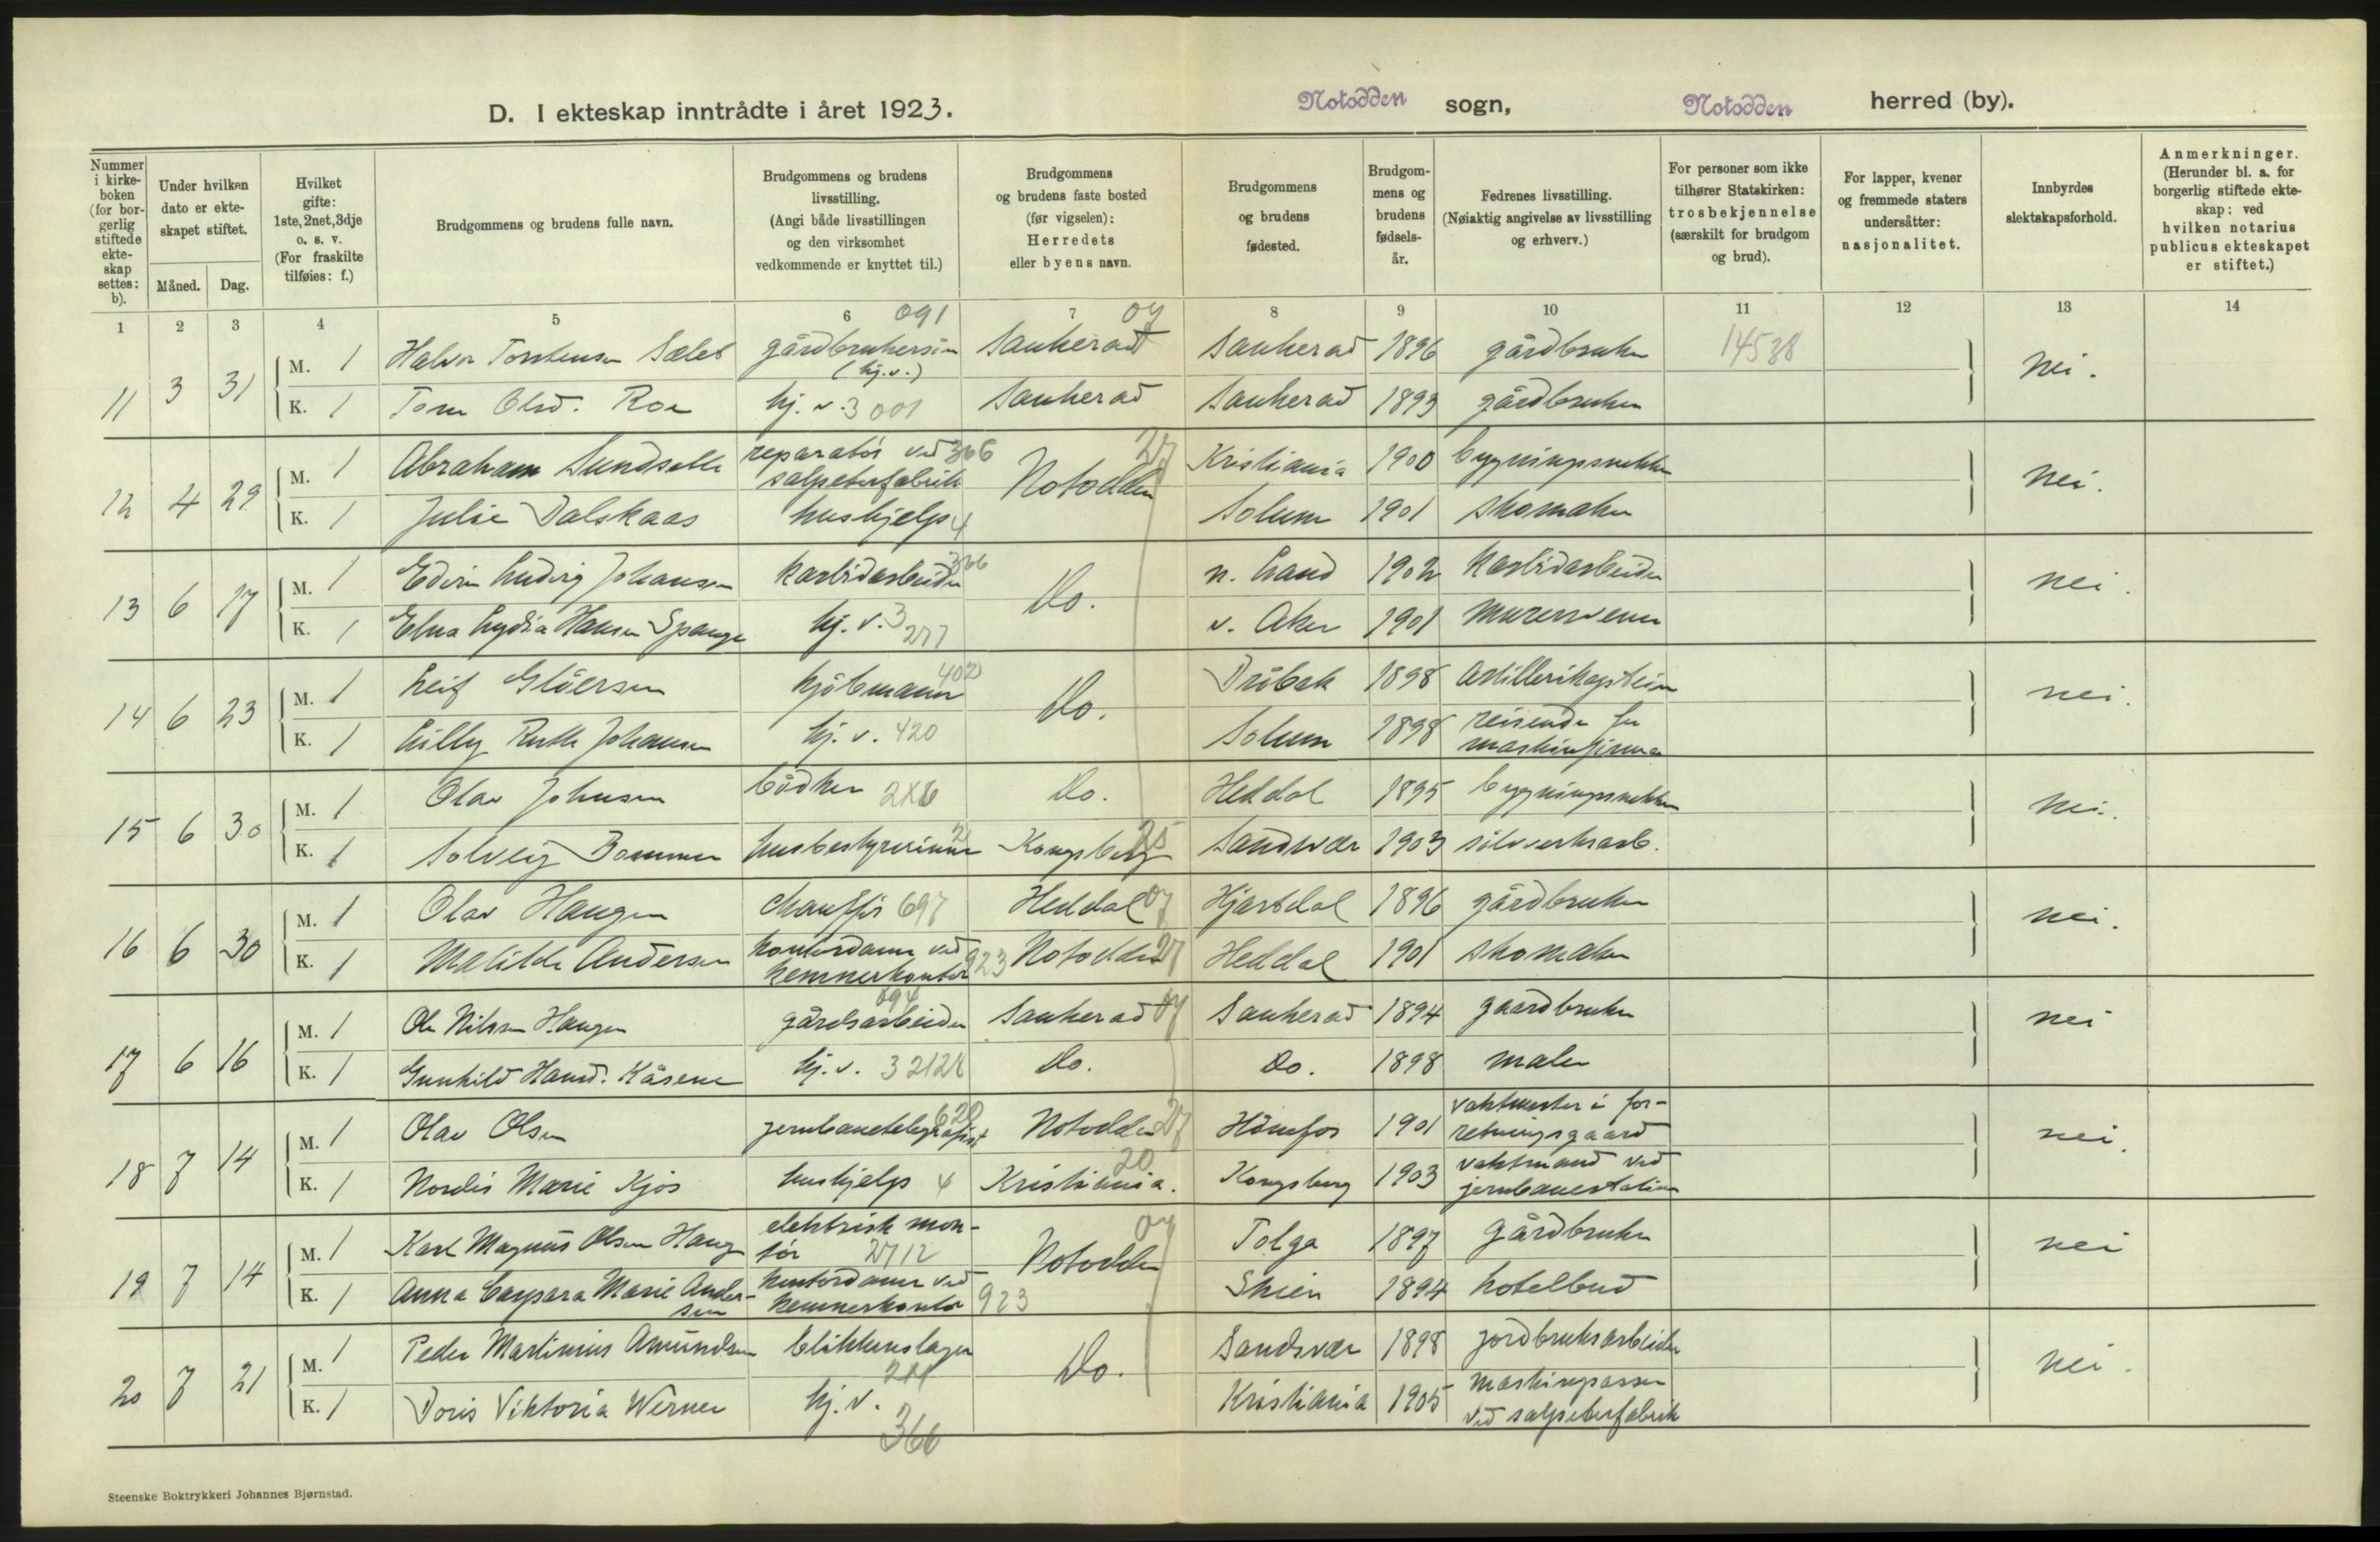 D. I ekteskap inntrådte i året 1923. Notodden sogn, Notodden herred (by).
Nummer i kirke-boken (for bor-gerlig stiftede ekte-skap settes: b).
Under hvilken dato er ekte-skapet stiftet.
Måned. Dag.
Hvilket gifte: 1ste, 2net, 3dje o. s. v. (For fraskilte tilføies: f.)
Brudgommens og brudens fulle navn.
Brudgommens og brudens livsstilling. (Angi både livsstillingen og den virksomhet vedkommende er knyttet til.)
Brudgommens og brudens faste bosted (før vigselen): Herredets eller byens navn.
Brudgommens og brudens fødested.
Brudgom-mens og brudens fødsels-år.
Fedrenes livsstilling. (Nøiaktig angivelse av livsstilling og erhverv.)
For personer som ikke tilhører Statskirken: trosbekjennelse (særskilt for brudgom og brud).
For lapper, kvener og fremmede staters undersåtter: nasjonalitet.
Innbyrdes slektskapsforhold.
Anmerkninger. (Herunder bl. a. for borgerlig stiftede ekte-skap: ved hvilken notarius publicus ekteskapet er stiftet.)
1 2 3 4 5 6 7 8 9 10 11 12 13 14
091 07
11 3 31 M. 1 Halvor Torstensen Sæleb gårdbrukersøn (hj.v.) Sauherad Sauherad 1896 gårdbruker 14538 Nei.
K. 1 Tone Olsd. Roe hj. v. 3 001 Sauherad Sauherad 1893 gårdbruker
12 4 29 M. 1 Abraham Sundsette reparatør ved 366 salpeterfabrik Notodden 27 Kristiania 1900 bygningssnekker Nei.
K. 1 Julie Dalskaas hushjelp 4 Solum 1901 skomaker
13 6 17 M. 1 Edvin Ludvig Johansen karbidarbeider 366 Do. n. Land 1902 Karbidarbeider nei.
K. 1 Elna Lydia Hansen Spange hj. v. 3 277 v. Aker 1901 Murersvenn
14 6 23 M. 1 Leif Glöersen kjöbmann 402 Do. Dröbak 1898 Artillerikaptein nei.
K. 1 Lilly Ruth Johansen hj. v. 420 Solum 1898 reisende for maskinfirma
15 6 30 M. 1 Olav Johnsen bödker Do. Heddal 1895 bygningssnekker Nei.
K. 1 Solveig Bommen husbestyrerinne 2 Kongsberg 25 Sandsvær 1903 sölvverksarb.
16 6 30 M. 1 Olav Haugen chaufför 697 Heddal 07 Hjartdal 1896 gårdbruker nei.
K. 1 Matilde Andersen kontordame ved kemnerkontor 923 Notodden 27 Heddal 1901 skomaker
17 6 16 M. 1 Ole Nilsen Haugen gårdsarbeider 094 Sauherad 07 Sauherad 1894 gaardbruker nei
K. 1 Gunhild Hansd. Kåsene hj. v. 3 212 Do. Do. 1898 maler
18 7 14 M. 1 Olav Olsen jernbanetelegrafist 620 Notodden 27 Hönefos 1901 vaktmester i for-retningsgaard nei.
K. 1 Nordis Marie Kjös hushjelp 4 Kristiania. 20 Kongsberg 1903 vaktmand ved jernbanestation
19 7 14 M. 1 Karl Magnus Olsen Haug elektrisk mon-tör 2712 Notodden 07 Tolga 1897 Gårdbruker nei
K. 1 Anna Caspara Marie Ander-sen kontordame ved kemnerkontor 923 Skien 1894 hotelbud
20 7 21 M. 1 Peder Martinius Amundsen blikkenslager Do. Sandsvær 1898 jordbruksarbeider nei.
K. 1 Doris Viktoria Werner hj. v. 3 366 Kristiania 1905 maskinpasser ved salpeterfabrik
Steenske Boktrykkeri Johannes Bjørnstad.